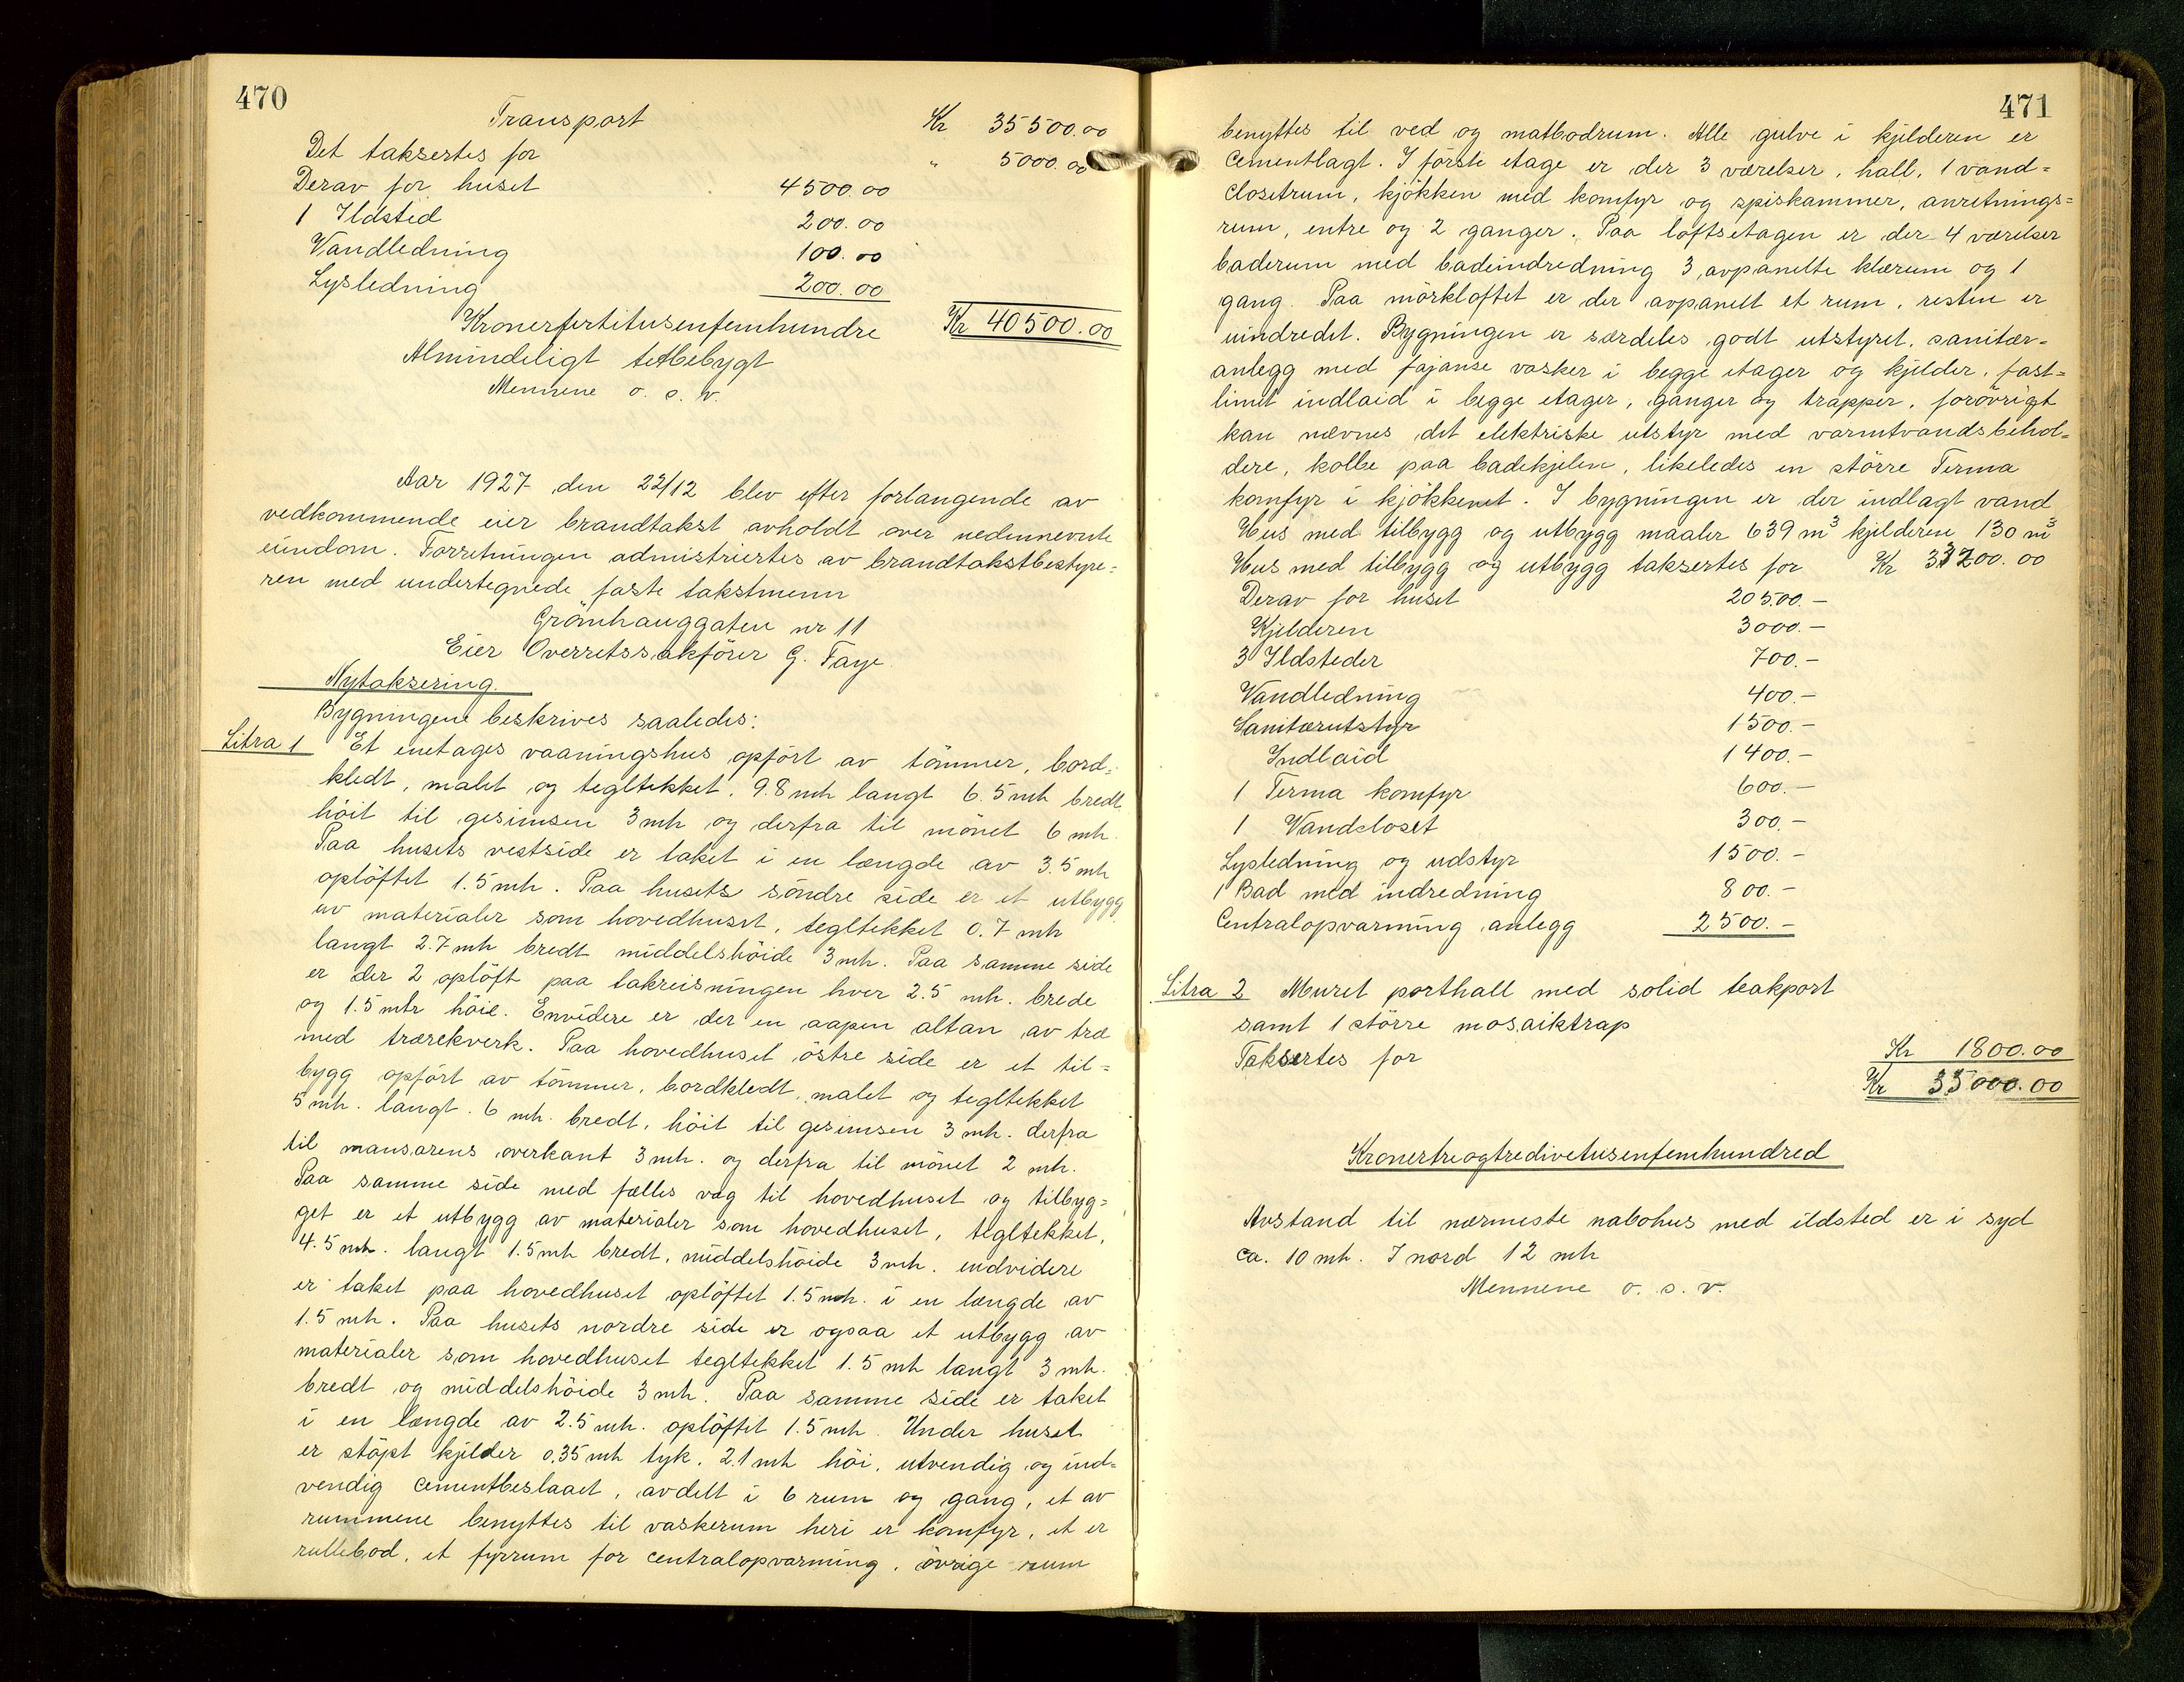 470
Transport Kr 35500.00
Det taksertes for " 5000.00
Derav for huset 4500.00
1 Ildsted 200.00
Vandledning 100.00
Lysledning 200.00
Kronerfertitusenfemhundre Kr 40500.00
Almindeligt tetbebygt
Mennene o. s. v.
Aar 1927 den 22/12 blev efter forlangende av
vedkommende eier brandtakst avholdt over nedennevnte
eiendom. Forretningen admistriertes av brandtakstbestyre=
ren med undertegnede faste takstmenn
Grönhauggaten nr 11
Eier Overretssakförer G. Faye.
Nytaksering.
Bygningene beskrives saaledes:
Litra 1 Et enetages vaaningshus opfört av tömmer, bord=
kledt, malet og tegltekket. 9.8 mtr langt 6.5 mtr bredt
höit til gesimsen 3 mtr og derfra til mönet 6 mtr.
Paa husets vestside er taket i en længde av 3.5 mtr
oplöftet 1.5 mtr. Paa husets söndre side er et utbygg
av materialer som hovedhuset, tegltekket 0.7 mtr
langt 2.7 mtr bredt middelshöide 3 mtr. Paa samme side
er der 2 oplöft paa takreisningen hver 2.5 mtr. brede
og 1.5 mtr höie. Envidere er der en aapen altan av træ
med trærekverk. Paa hovedhuset östre side er et til=
bygg opfört av tömmer, bordkledt, malet og tegltekket
5 mtr. langt. 6 mtr. bredt, höit til gesimsen 3 mtr. derfra
til mansarens overkant 3 mtr. og derfra til mönet 2 mtr.
Paa samme side med fælles væg til hovedhuset og tilbyg=
get er et utbygg av materialer som hovedhuset, tegltekket,
4.5 mtr. langt 1.5 mtr bredt, middelshöide 3 mtr. endvidere
er taket paa hovedhuset oplöftet 1.5 mtr. i en længde av
1.5 mtr. Paa husets nordre side er ogsaa et utbygg av
materialer som hovedhuset tegltekket 1.5 mtr langt 3 mtr.
bredt og middelshöide 3 mtr. Paa samme side er taket
i en længde av 2.5 mtr. oplöftet 1.5 mtr. Under huset
er stöpt kjelder 0.35 mtr tyk. 2.1 mtr höi, utvendig og ind=
vendig cementbeslaaet, avdelt i 6 rum og gang, et av
rummene benyttes til vaskerum heri er komfyr, et er
rullebod, et fyrrum for centralopvarming, övrige rum
471
benyttes til ved og matbodrum. Alle gulve i kjelderen er
cementlagt. I förste etage er der 3 værelser, hall, 1 vand=
closetrum, kjökken med komfyr og spiskammer, anretnings=
rum, entre og 2 ganger. Paa loftsetagen er der 4 værelser
baderum med badeindredning 3 avpanelte klærum og 1
gang. Paa mörkloftet er der avpanelt et rum, resten er
uindredet. Bygningen er særdeles godt utstyret, sanitær=
anlegg med fajanse vasker i begge etager og kjelder, fast=
limet indlaid i begge etager, ganger og trapper, forövrigt
kan nævnes det elektriske utstyr med varmtvandsbehol=
dere, kolbe paa badekjelen, likeledes en större Terma
komfyr i kjökkenet. I bygningen er der indlagt vand
Hus med tilbygg og utbygg maaler 639 m³ kjelderen 130 m³
Hus med tilbygg og utbygg taksertes for Kr 33200.00
Derav for huset 20500.-
Kjelderen 3000.-
3 Ildsteder 700.-
Vandledning 400.-
Sanitærutstyr 1500.-
Indlaid 1400.-
1 Terma komfyr 600.-
1 Vandcloset 300.-
Lysledning og udstyr 1500.-
1 Bad med indredning 800.-
Centralopvarming anlegg 2500.-
Litra 2 Muret porthall med solid teakport
samt 1 större mosaiktrap
Taksertes for Kr 1800.00
Kr 35000.00
Kronertreogtredivetusenfemhundred
Avstand til nærmeste nabohus med ildsted er i syd
ca. 10 mtr. I nord 12 mtr
Mennene o. s. v.